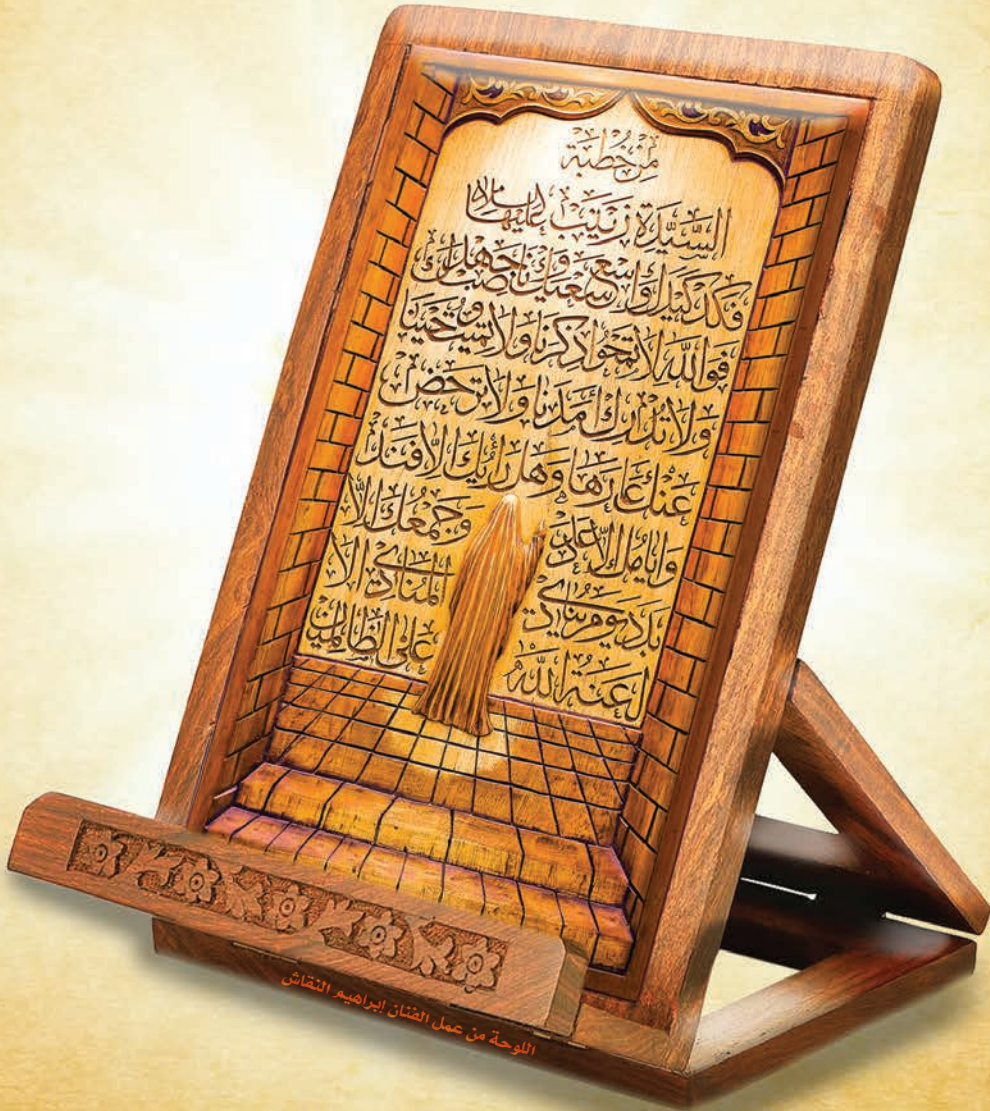 مِنْ خُطبَة
السَّيِّدَة زَيْنَب عليها سلام
فكد كيدك واسع سعيك وناصب جهدك
فوالله لا تمحوا ذكرنا ولا تميت وحينا
ولا تدرك أمدنا ولا يرحض
عنك عارها وهل رأيك إلا فند
وايامك إلا عدد وجمعك إلا
بدد يوم ينادي المنادي ألا
لعنة الله على الظالمين
اللوحة من عمل الفنان إبراهيم النقاش